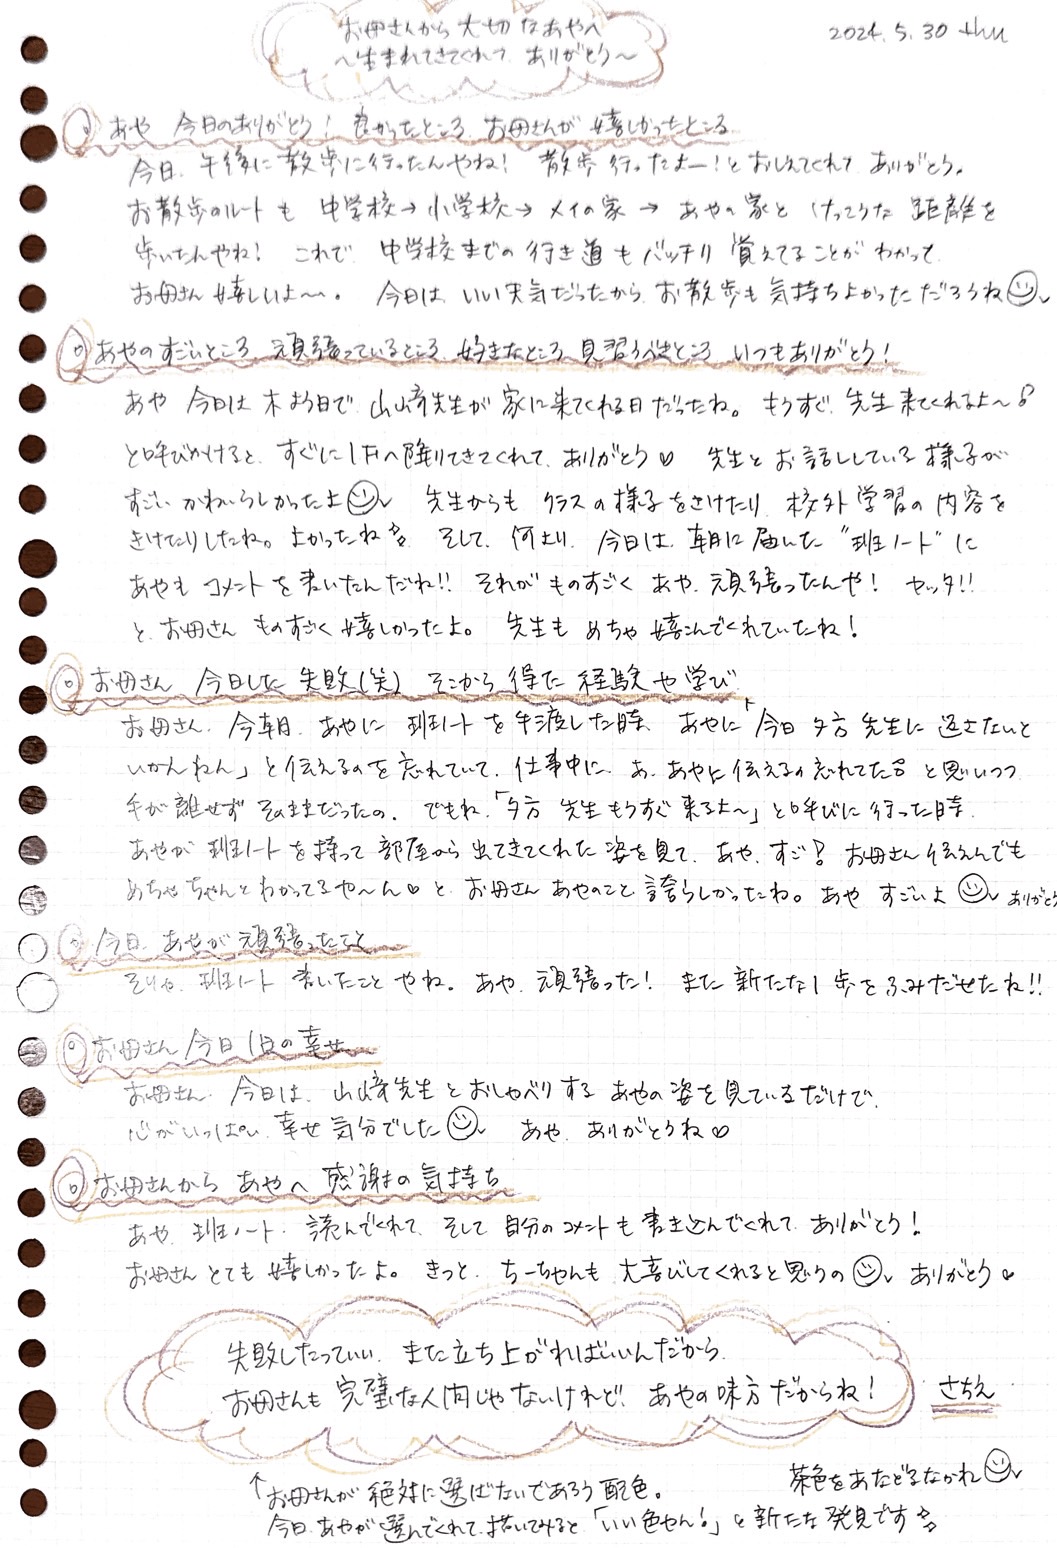 お母さんから大切なあやへ
～生まれてきてくれて ありがとう～
2024. 5. 30 thu
あや 今日のありがとう！良かったところ お母さんが嬉しかったところ
今日、午後に散歩に行ったんやね！ 散歩行ったよー！とおしえてくれて ありがとう。
お散歩のルートも 中学校→小学校→メイの家→あやの家と けっこうな 距離を
歩いたんやね！ これで 中学校までの 行き道もバッチリ 覚えてることがわかって
お母さん 嬉しいよ〜。 今日は いい天気だったから お散歩も気持ちよかっただろうね
あやのすごいところ 頑張っているところ 好きなところ 見習うべきところ いつもありがとう！
あや 今日は 木よう日で 山﨑先生が 家に来てくれる日だったね。 もうすぐ 先生来てくれるよ～！
と呼びかけると、すぐに1Fへ降りてきてくれて、ありがとう♡ 先生と お話ししている 様子が
すごい かわいらしかったよ 先生からも クラスの様子をきけたり 校外学習の内容を
きけたりしたね。よかったね そして、何より 今日は 朝に届いた “班ノート”に
あやも コメントを書いたんだね!! それが ものすごく あや、頑張ったんや！ ヤッタ!!
と お母さん ものすごく嬉しかったよ。 先生も めちゃ 嬉こんでくれていたね！
お母さん 今日した 失敗(笑) そこから 得た 経験や学び
お母さん、今朝、あやに 班ノートを手渡した時 あやに「今日 夕方 先生に 返さないと
いかんねん」と伝えるのを忘れていて、仕事中に、あ、あやに 伝えるの忘れてた と思いつつ
手が離せず そのままだったの。 でもね、「夕方 先生もうすぐ 来るよ～」と呼びに行った時
あやが 班ノートを持って 部屋から 出てきてくれた 姿を見て、あや、すご！ お母さん伝えんでも
めちゃちゃんとわかってるや～ん♡と お母さん あやのこと 誇らしかったわ。あや すごいよ ありがとう
今日、あやが頑張ったこと
そりゃ、班ノート 書いたこと やね。あや、頑張った！ また 新たな1歩をふみだせたね!!
お母さん今日1日の幸せ
お母さん、今日は、山﨑先生とおしゃべりする あやの姿を見ているだけで、
心がいっぱい 幸せ気分でした あや、ありがとうね♡
お母さんから あやへ 感謝の気持ち
あや、班ノート、読んでくれて、そして 自分のコメントも書き込んでくれて、ありがとう！
お母さんとても 嬉しかったよ。きっと、ちーちゃんも 大喜びしてくれると思うの ありがとう♡
失敗したっていい、また立ち上がればいいんだから
お母さんも 完璧な人間じゃないけれど、あやの味方だからね！
さちえ
↑お母さんが絶対に選ばないであろう配色。
茶色をあなどるなかれ
今日、あやが選んでくれて、描いてみると「いい色やん！」と新たな発見です